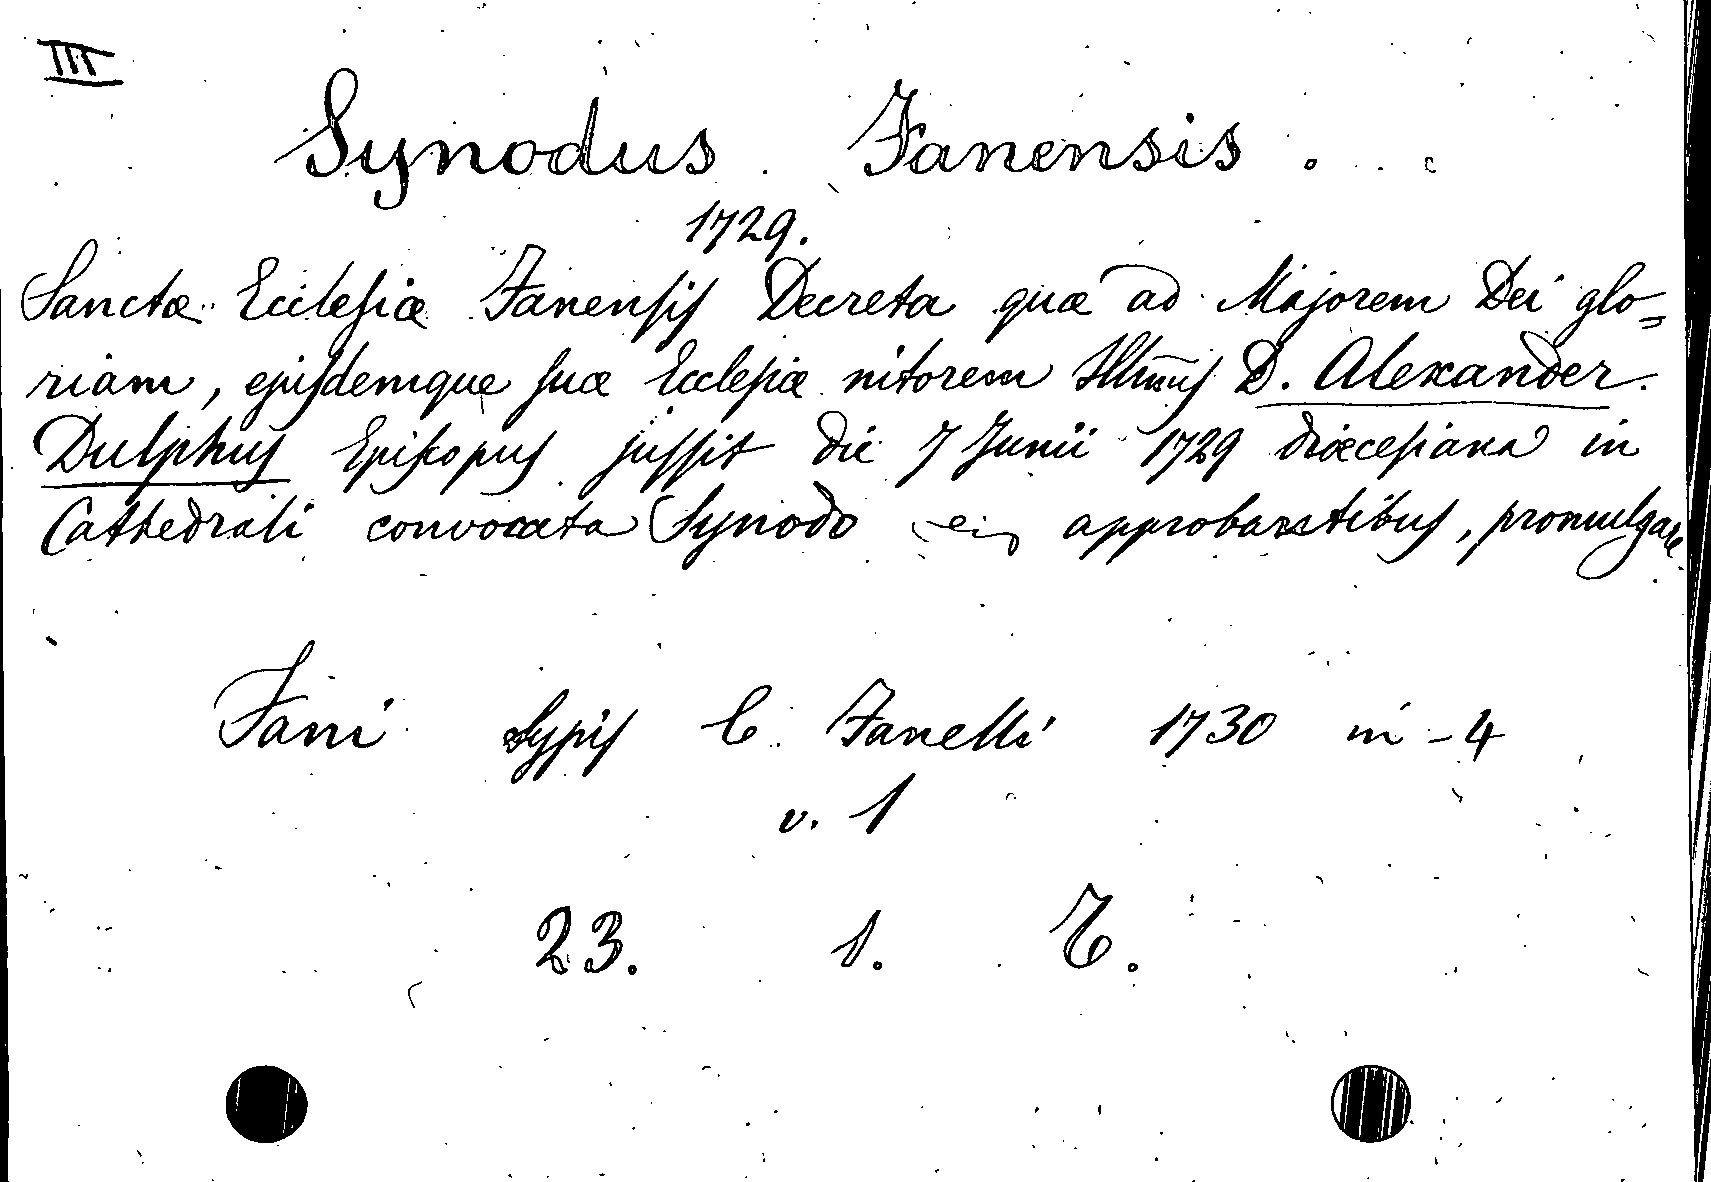 III
Synodus Fanensis.
1729.
Sanctæ Ecclesiæ Fanensis Decreta quæ ad Majorem Dei glo=
riam, ejusdemque suæ Ecclesiæ nitorem Illmus D. Alexander
Dulphus Episcopus jussit die 7 Junii 1729 diæcesiana in
Cathedrali convocata Synodo approbantibus, promulgare
Fani typis C. Fanelli 1730 in-4
v. 1
23. 1. T.